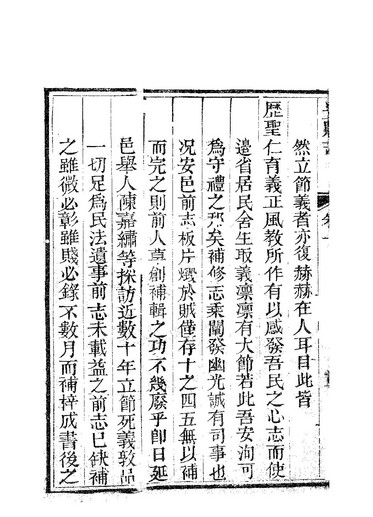 然立節義者亦復赫赫在人耳目此皆
歷聖仁育義正風教所作有以感發吾民之心志而使
邊省居民舍生取義凜凜有大節若此吾安洵可
為守禮之邦矣補修志乘闡發幽光誠有司事也
况安邑前志板片燬於賊僅存十之四五無以補
而完之則前人草創補輯之功不幾廢乎即日延
邑舉人陳嘉繡等採訪近數十年立節死義敦品
一切足為民法遺事前志未載益之前志已缺補
之雖微必彰雖賤必錄不數月而補梓成書後之